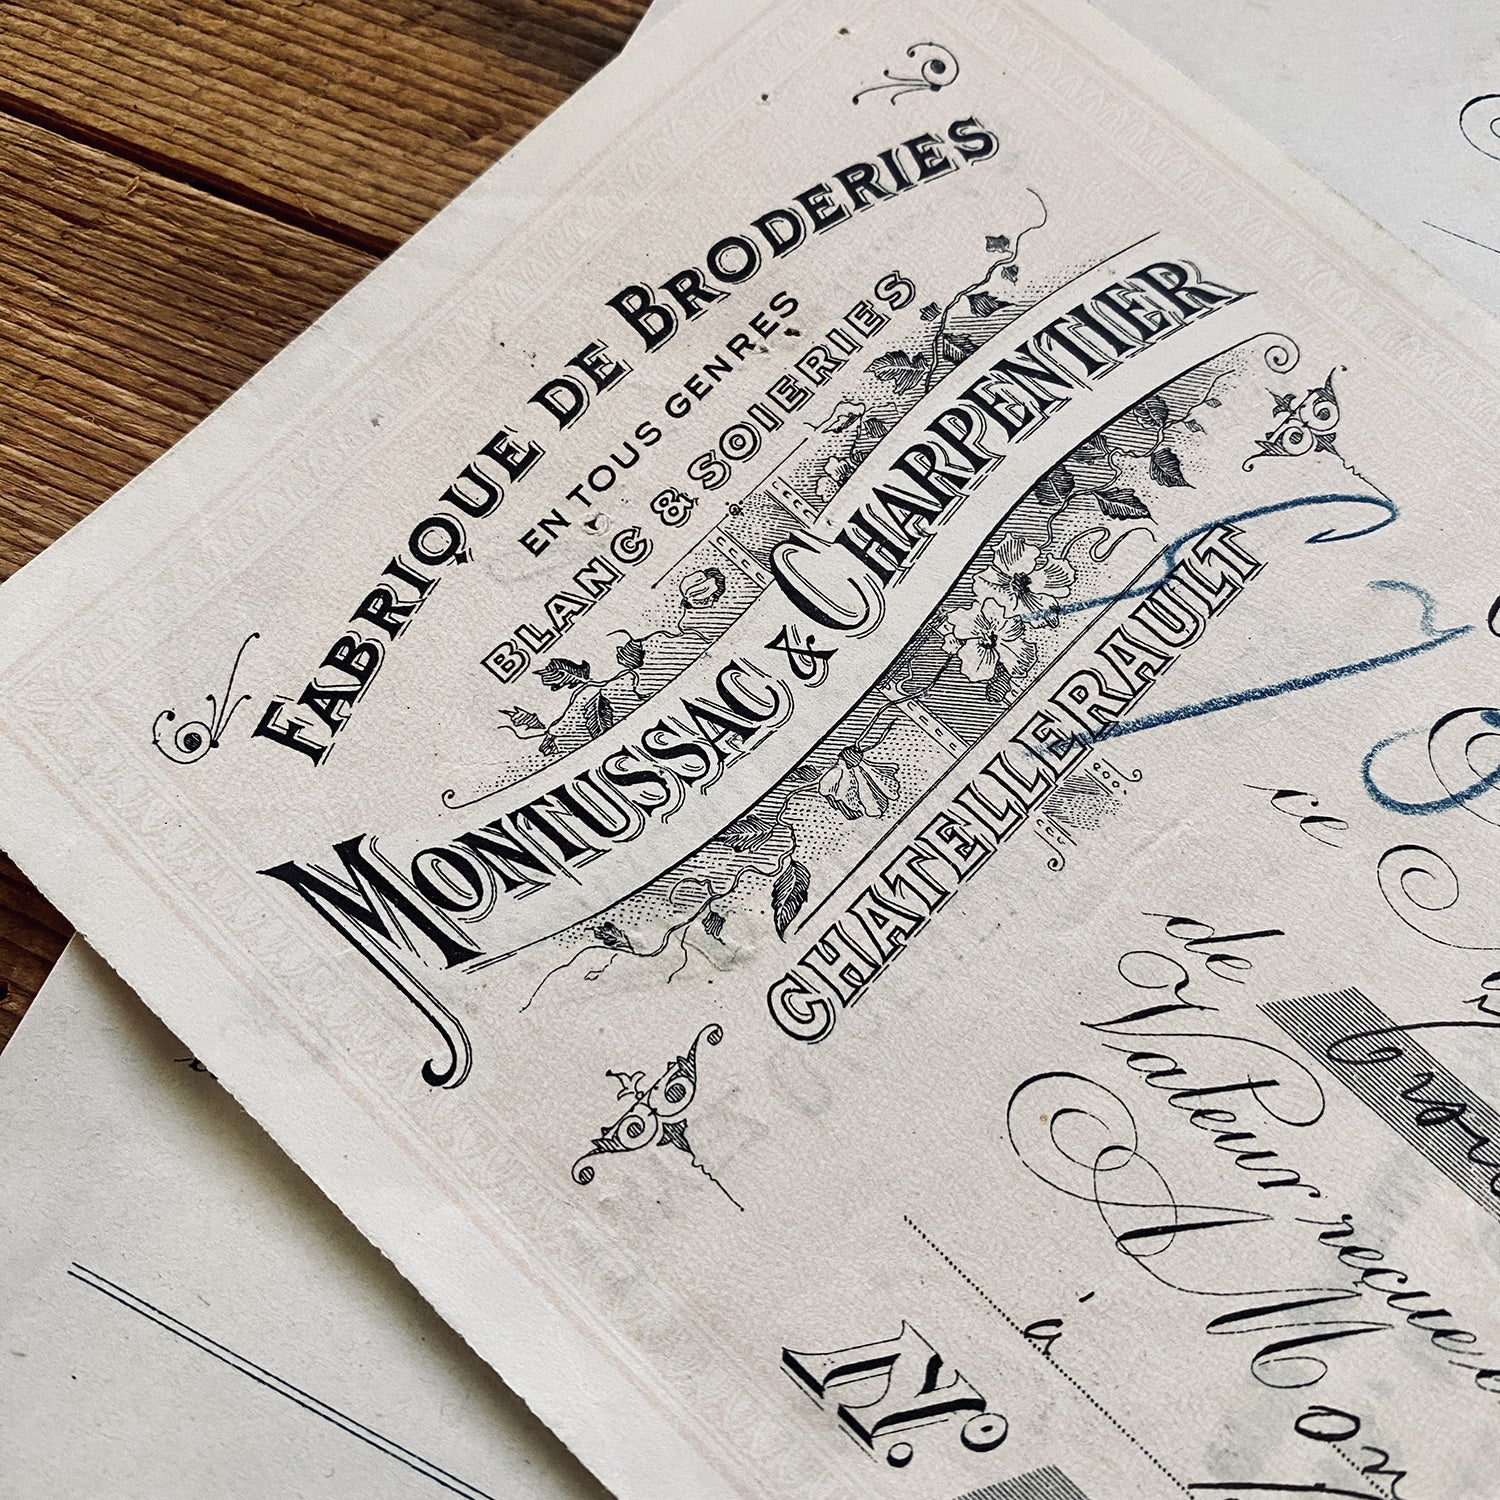 FABRIQUE DE BRODERIES
EN TOUS GENRES
BLANC & SOIERIES
MONTUSSAC & CHARPENTIER
CHATELLERAULT
ce
de
Valeur reçue
A M
à
N°.